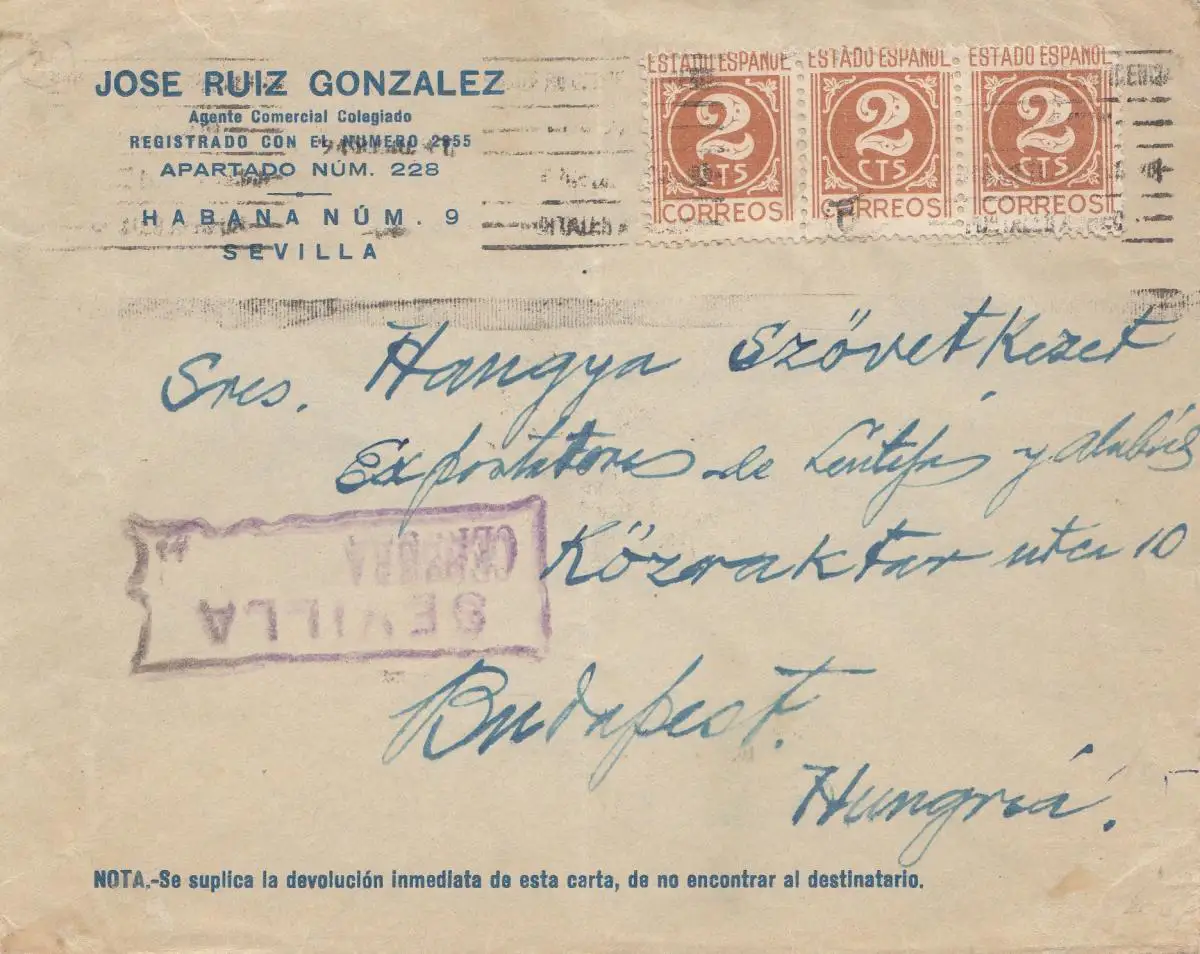 JOSE RUIZ GONZALEZ
Agente Comercial Colegiado
REGISTRADO CON EL NUMERO 2955
APARTADO NÚM. 228
HABANA NÚM. 9
SEVILLA
ESTADO ESPAÑOL ESTADO ESPAÑOL ESTADO ESPAÑOL
2 2 2
CTS CTS CTS
CORREOS CORREOS CORREOS
Sres. Hangya Szövetkezet
Exportatores de Lentejas y alubias
Közraktar utca 10
CENSURA
SEVILLA
Budapest.
Hungría.
NOTA.-Se suplica la devolución inmediata de esta carta, de no encontrar al destinatario.